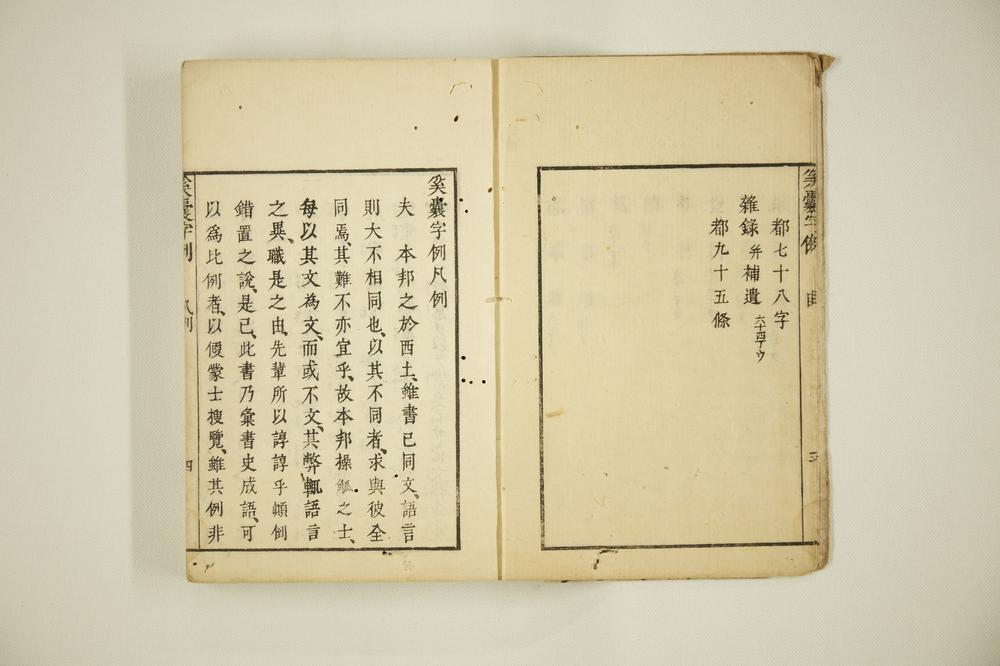 都七十八字
雜錄 并補遺 六十四丁ウ
都九十五條
奚囊字例凡例
夫 本邦之於西土、雖書已同文、語言
則大不相同也、以其不同者、求與彼全
同焉、其難不亦宜乎、故本邦操觚之士、
每以其文為文、而或不文、其弊輒語言
之異、職是之由、先輩所以諄諄乎顛倒
錯置之說、是已、此書乃彙書史成語、可
以爲比例者、以便蒙士搜覽、雖其例非
奚囊字例
四